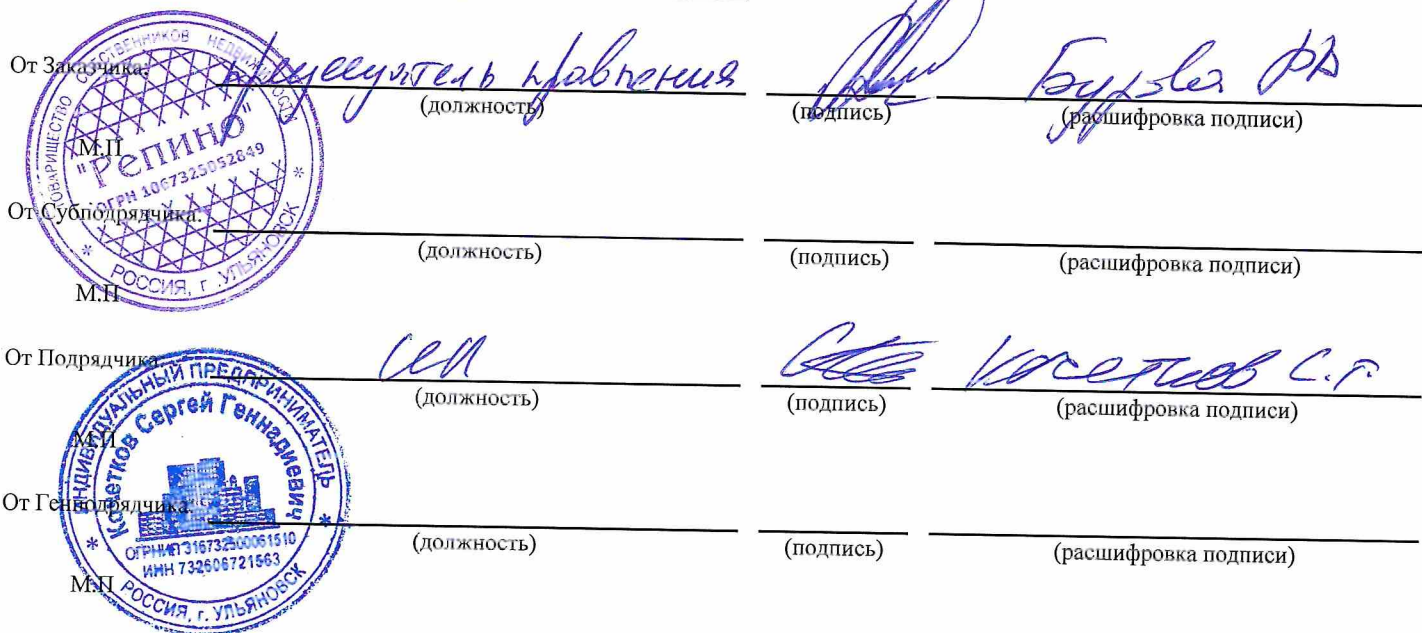 От Заказчика: председатель правления Бурова РА
(должность) (подпись) (расшифровка подписи)
М.П
ТОВАРИЩЕСТВО СОБСТВЕННИКОВ НЕДВИЖИМОСТИ
"Репино"
ОГРН 1067325052849
* РОССИЯ, г. УЛЬЯНОВСК *
От Субподрядчика:
(должность) (подпись) (расшифровка подписи)
М.П
От Подрядчика: ИП Кочетков С.Г.
(должность) (подпись) (расшифровка подписи)
М.П
ИНДИВИДУАЛЬНЫЙ ПРЕДПРИНИМАТЕЛЬ
Кочетков Сергей Геннадиевич
ОГРНИП 316732500061510
ИНН 732606721563
* РОССИЯ, г. УЛЬЯНОВСК *
От Генподрядчика:
(должность) (подпись) (расшифровка подписи)
М.П